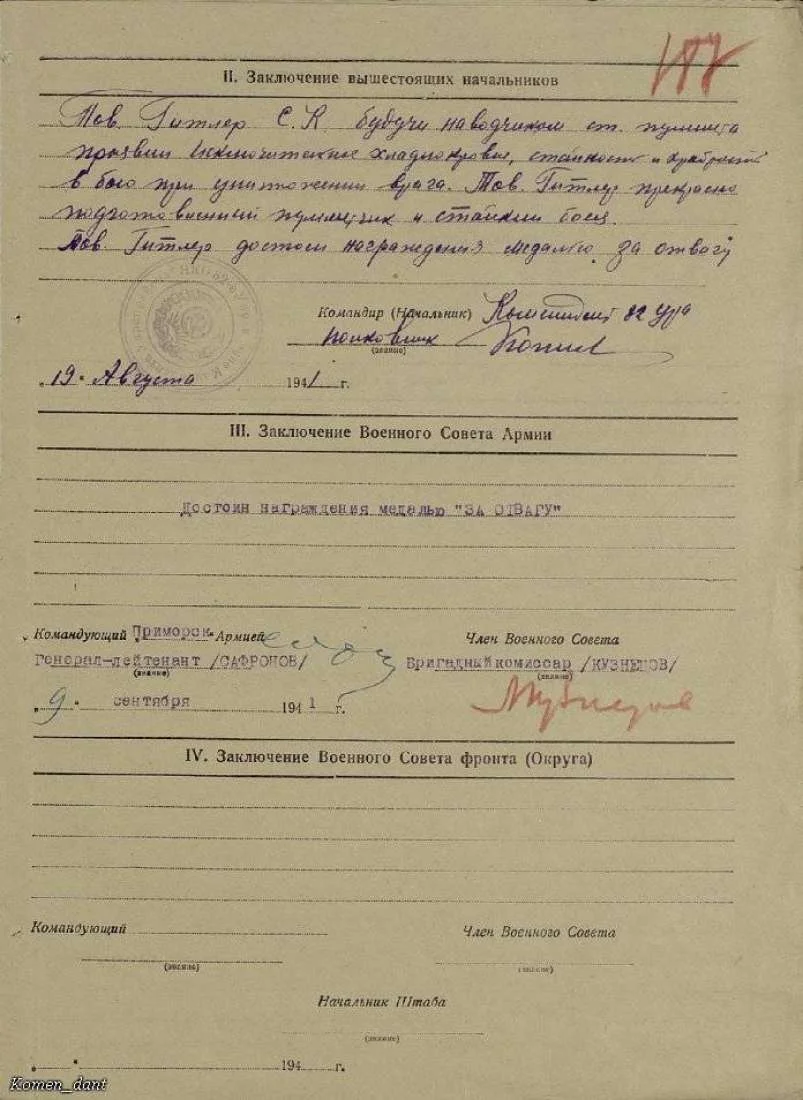 II. Заключение вышестоящих начальников
Тов. Гитлер С.К. будучи наводчиком ст. пулемета
проявил исключительное хладнокровие, стойкость и храбрость
в бою при уничтожении врага. Тов. Гитлер прекрасно
подготовленный пулеметчик и стойкий боец.
Тов. Гитлер достоин награждения медалью за отвагу
Командир (Начальник) Комендант 82 Ура
полковник
(звание)
"19" Августа 1941 г.
III. Заключение Военного Совета Армии
Достоин награждения медалью "ЗА ОТВАГУ"
Командующий Приморск. Армией
Член Военного Совета
Генерал-лейтенант /САФРОНОВ/
Бригадный комиссар /КУЗНЕЦОВ/
(звание)
(звание)
"9" сентября 1941 г.
IV. Заключение Военного Совета фронта (Округа)
Командующий
Член Военного Совета
(звание)
(звание)
Начальник Штаба
(звание)
" " 194 г.
Komen_dant